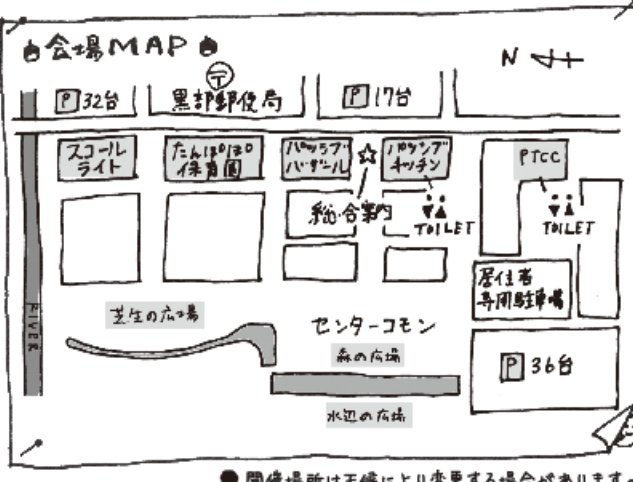 会場MAP
N
P 32台
〒
黒部郵便局
P 17台
スコール
ライト
たんぽぽ
保育園
パッシブ
バザール
パッシブ
キッチン
PTCC
総合案内
TOILET
TOILET
RIVER
芝生の広場
センターコモン
森の広場
水辺の広場
居住者
専用駐車場
P 36台
●開催場所は天候により変更する場合があります。